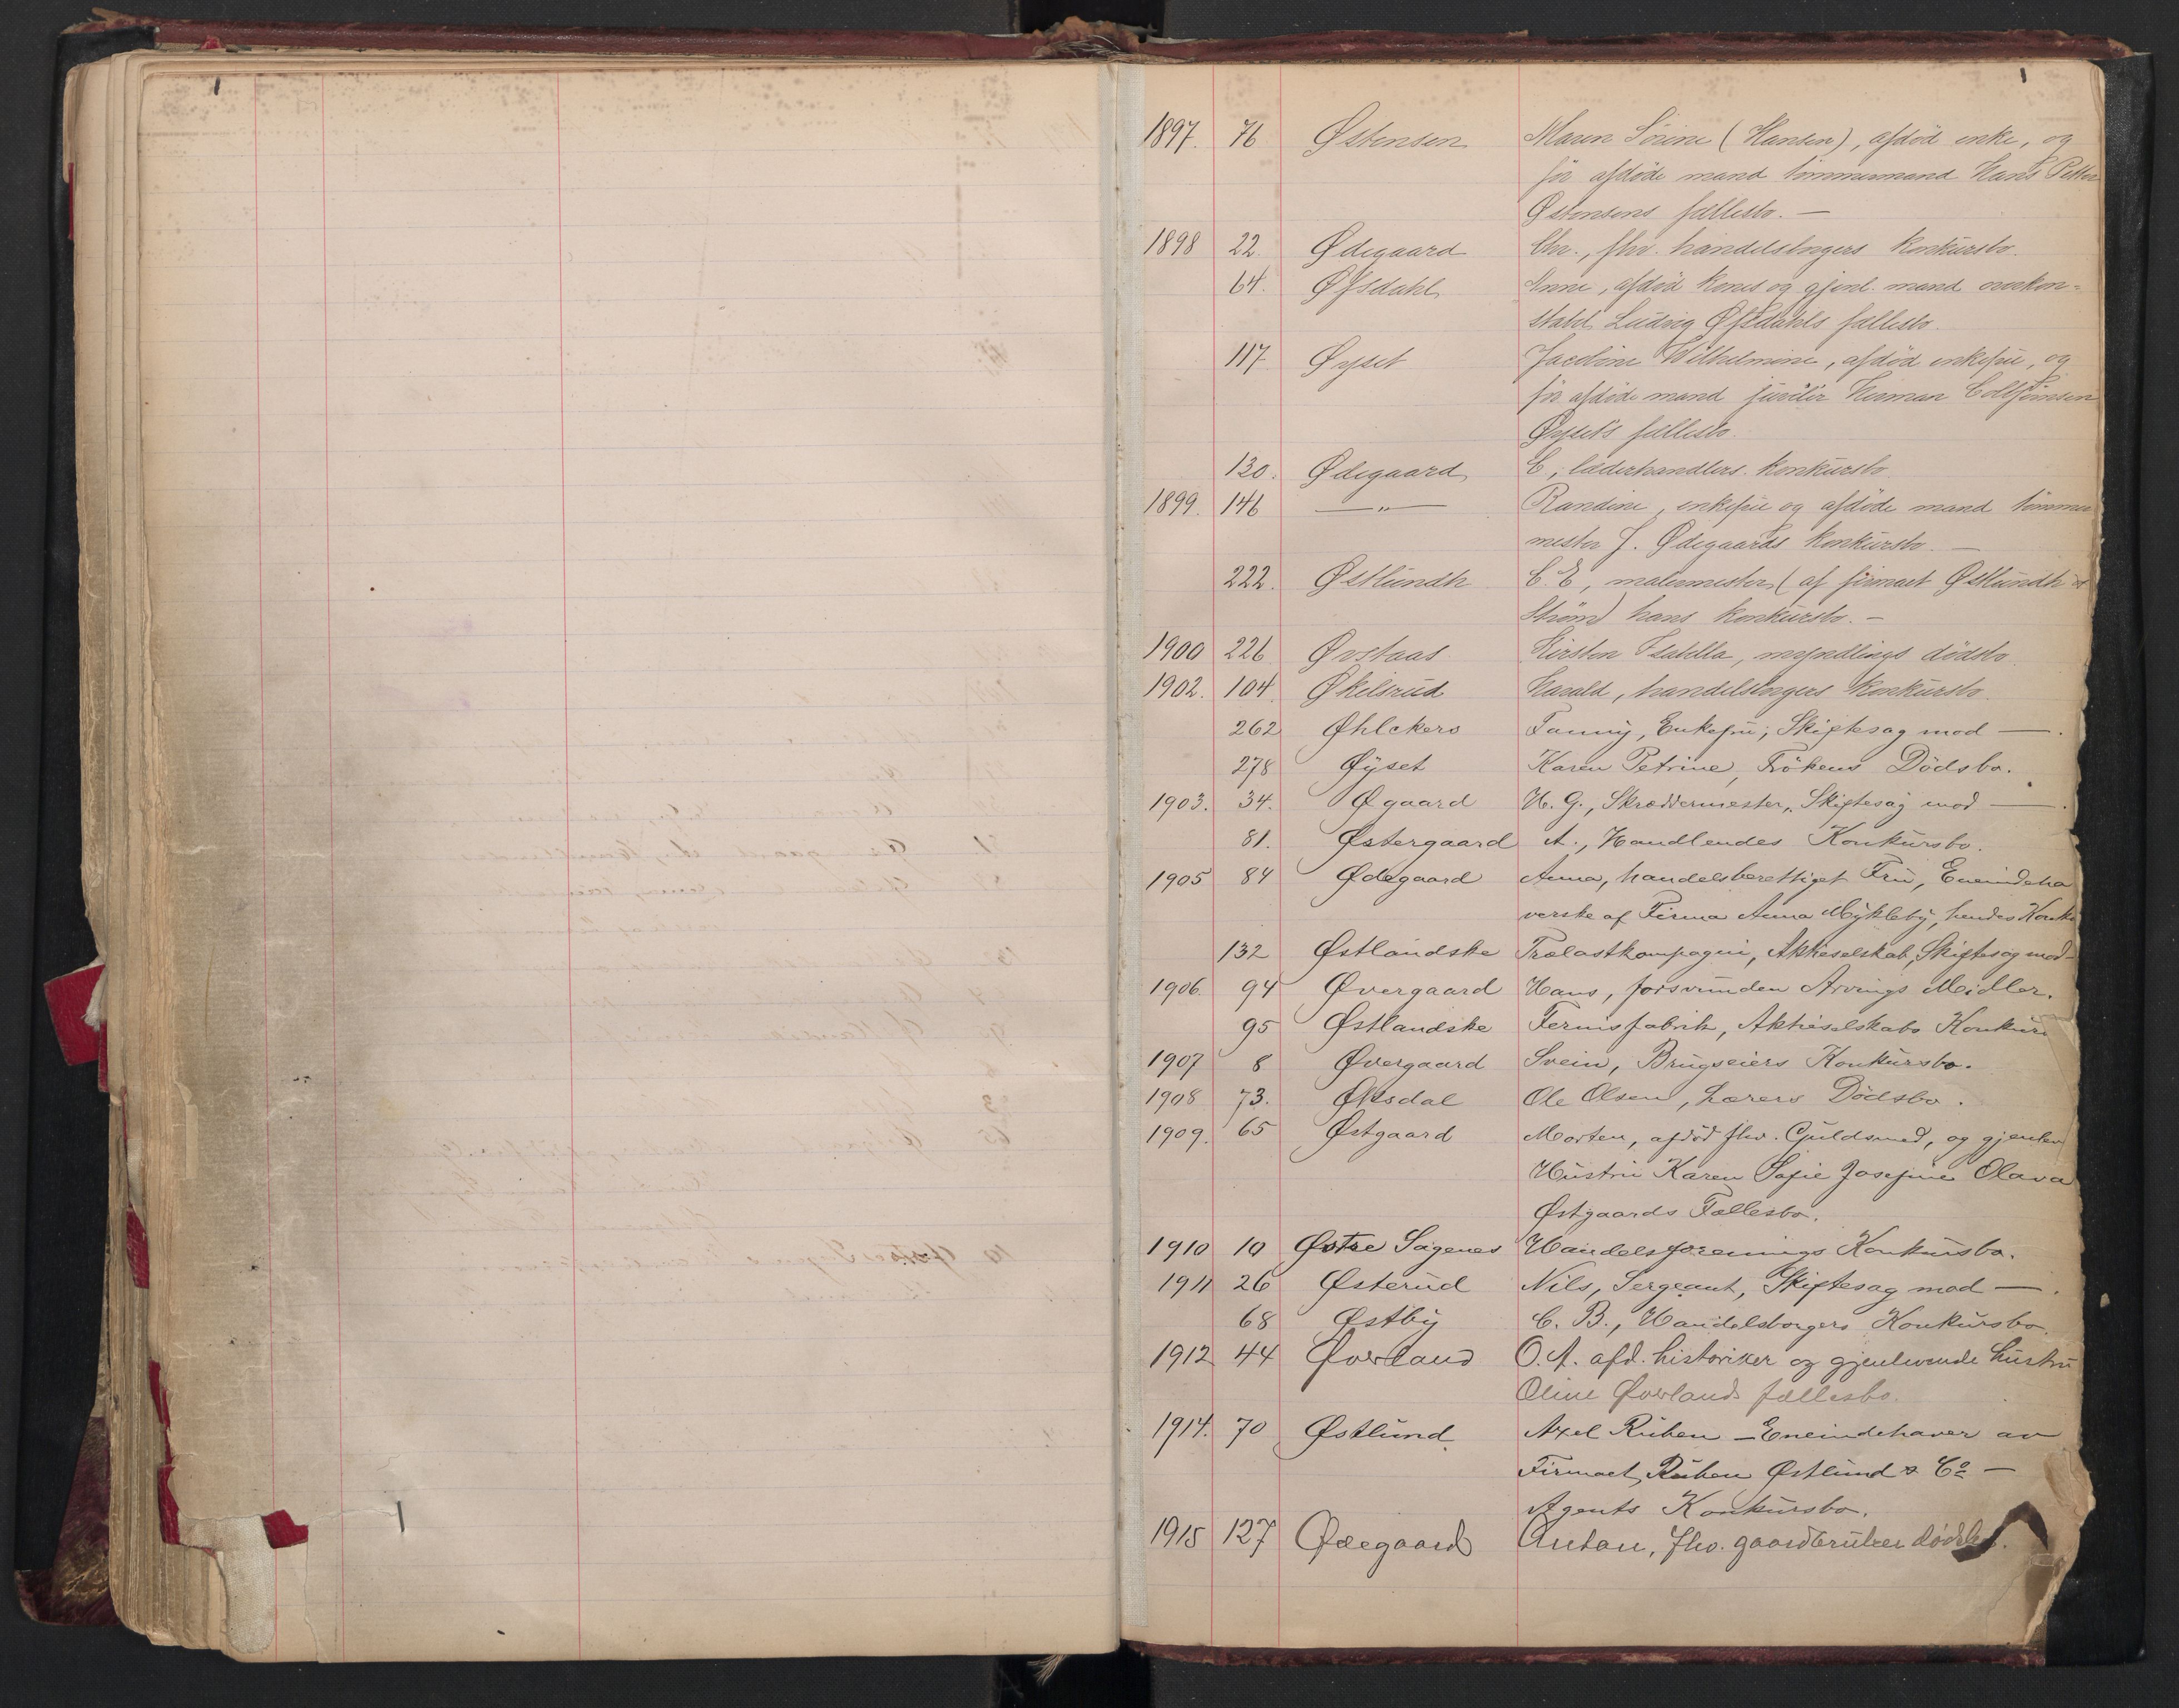 1897. 76 Østensen Maren Sörine (Hansen), afdöd enke, og
för afdöde mand tömmermand Hans Petter
Østensens fællesbo. —
1898 22. Ødegaard Chr., fhv. handelsborgers konkursbo.
64. Øfsdahl Anne, afdöd kones og gjenl. mand overkon-
stabel Ludvig Øfsdahls fællesbo.
117 Øyset Jacobine Wilhelmine, afdöd enkefru, og
för afdöde mand juvelér Herman
Øysets fællesbo
130. Ødegaard C, læderhandlers konkursbo
1899. 146 —„— Randine, enkefru og afdöde mand tömmer
mester J. Ødegaards konkursbo. —
222. Østlundh C. E, malermester (af firmaet Østlundh &
Ström) hans konkursbo. —
1900 226 Øvstaas Kirsten Isabella, myndlings dödsbo
1902. 104. Økelsrud Harald, handelsborgers konkursbo.
262 Øhlckers Fanny, Enkefru, Skiftesag mod — .
278 Øyset Karen Petrine, Frökens Dödsbo.
1903. 34. Øgaard H. G., Skræddermester, Skiftesag mod — .
81. Østergaard A., Handlendes Konkursbo.
1905 84 Ødegaard Anna, handelsberettiget Fru, Eneindeha
verske af Firma Anna Mykleby, hendes Konku
132 Østlandske Trælastkompagni, Aktieselskab, Skiftesag mod —
1906. 94 Øvergaard Hans, forsvunden Arvings Midler.
95 Østlandske Fernisfabrik, Aktieselskabs Konkur
1907 8 Øvergaard Svein, Brugseiers Konkursbo.
1908 73. Øksdal Ole Olsen, Lærers Dödsbo.
1909. 65 Østgaard Morten, afdöd fhv. Guldsmed, og gjenlev
Hustru Karen Sofie Josefine Olava
Østgaards Fællesbo.
1910 10 Østre Sagenes Handelsforenings Konkursbo.
1911 26 Østerud Nils, Sergeant, Skiftesag mod — .
68 Østby C. B., Handelsborgers Konkursbo.
1912 44 Øverland O. A. afd. historiker og gjenlevende hustru
Oline Øverlands fællesbo.
1914. 70 Østlund Axel Ruben — Eneindehaver av
Firmaet Ruben Østlund & Co —
Agents Konkursbo.
1915 127 Ødegaard Anton, fhv. gaardbruker dödsbo.